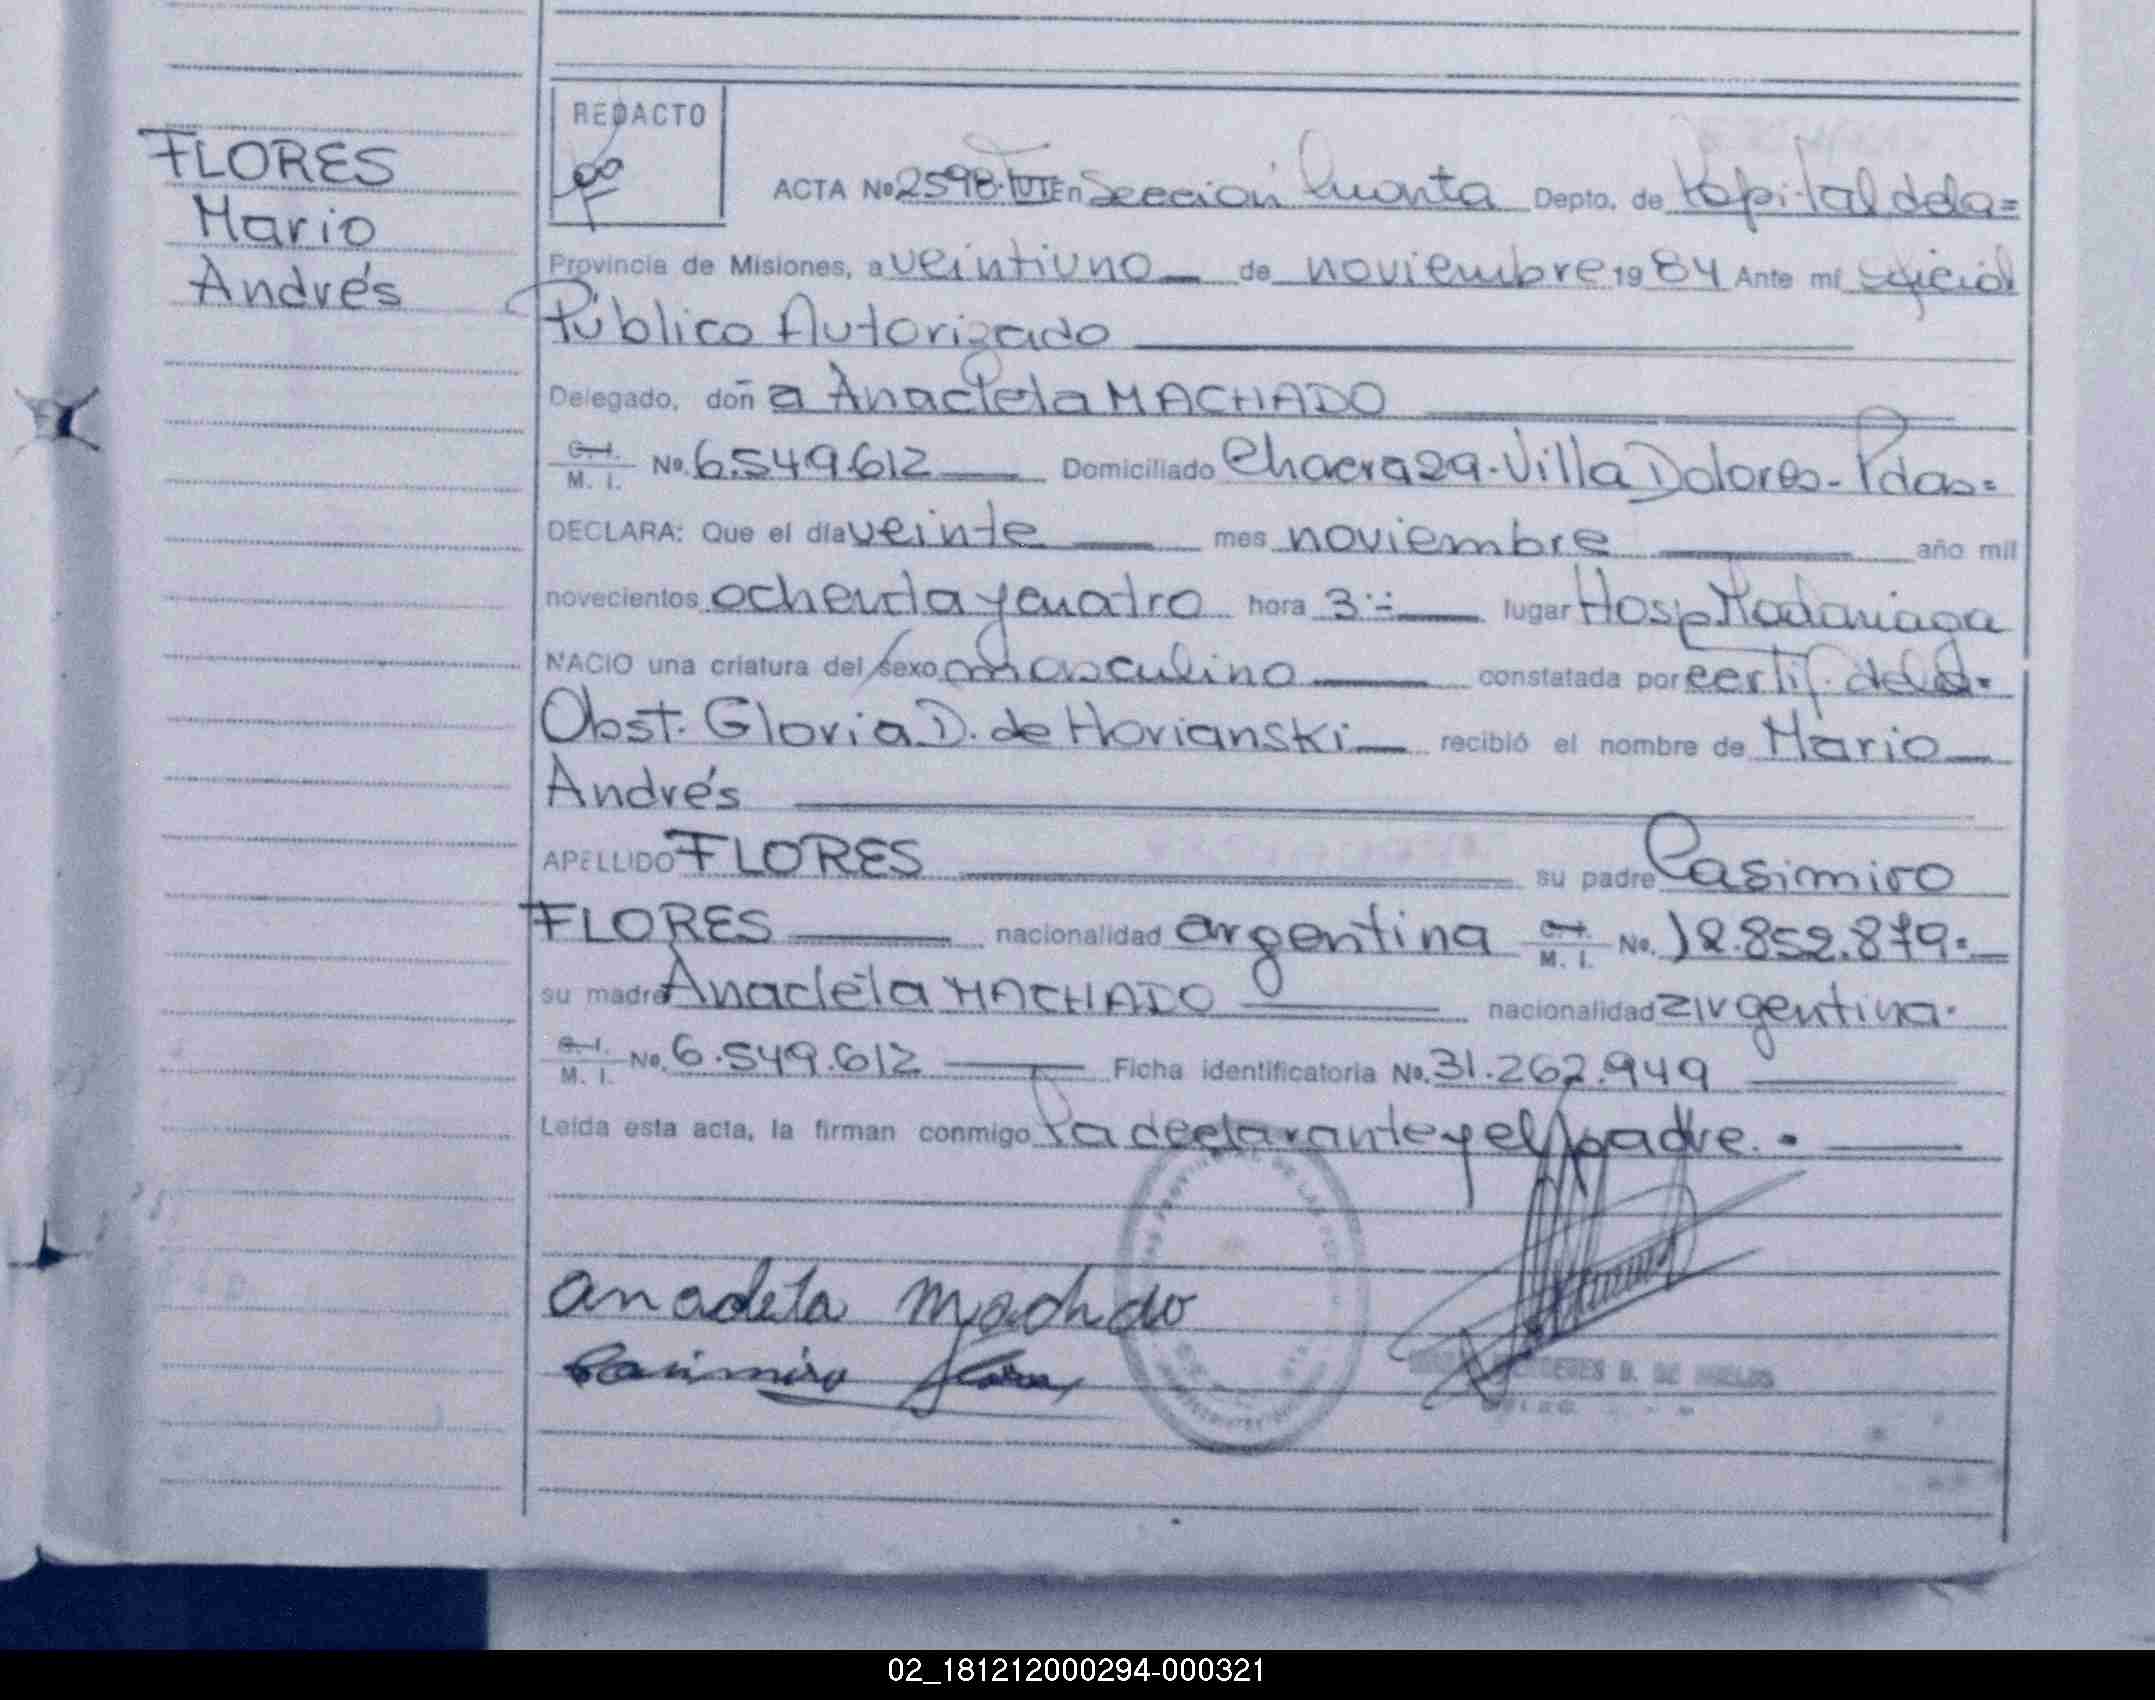 FLORES
Mario
Andrés
REDACTO
ACTA No 2598. En Sección Cuarta Depto. de Capital de la=
Provincia de Misiones, a veintiuno de noviembre 1984 Ante mí oficial
Público Autorizado
Delegado, doña Anacleta MACHADO
C. I. M. I. No. 6.549.612 Domiciliado Chacra 29. Villa Dolores- Pdas=
DECLARA: Que el día veinte mes noviembre año mil
novecientos ochenta y cuatro hora 3:- lugar Hosp Madariaga
NACIO una criatura del sexo masculino constatada por certif. de la
Obst. Gloria D. de Horianski recibió el nombre de Mario
Andrés
APELLIDO FLORES su padre Casimiro
FLORES nacionalidad argentina C. I. M. I. No. 12.852.879.
su madre Anacleta MACHADO nacionalidad argentina.
C. I. M. I. No. 6.549.612 Ficha identificatoria No. 31.262.949
Leída esta acta, la firman conmigo La declarante y el padre.
Anacleta Machado
Casimiro Flores
02_181212000294-000321